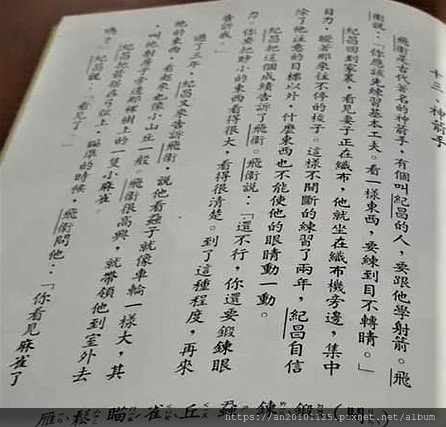 十三　神箭手
飛衛是古代著名的神箭手，有個叫紀昌的人，要跟他學射箭。飛
衛說：「你應該先練習基本工夫。看一樣東西，要練到目不轉睛。」
紀昌回到家裏，看見妻子正在織布，他就坐在織布機旁邊，集中
目力，瞪著那來往不停的梭子。這樣不間斷的練習了兩年，紀昌自信
除了他注意的目標以外，什麼東西也不能使他的眼睛動一動。
紀昌把這個成績告訴了飛衛。飛衛說：「還不行，你還要鍛鍊眼
力。你要把眇小的東西看得很大，看得很清楚。到了這種程度，再來
告訴我。」
過了三年，紀昌又來告訴飛衛，說他看蝨子就像車輪一樣大，其
他的東西，看起來也像小山丘一般。飛衛很高興，就帶領他到室外去
，叫他射房子旁邊那棵樹上的一隻小麻雀。
紀昌把箭搭在弓弦上，瞄準的時候，飛衛問他：「你看見麻雀了
嗎？」紀昌說：「看見了。」
鍛 鍊 蝨 丘 雀 瞄 鬆 雁
https://an20101125.pixnet.net/album